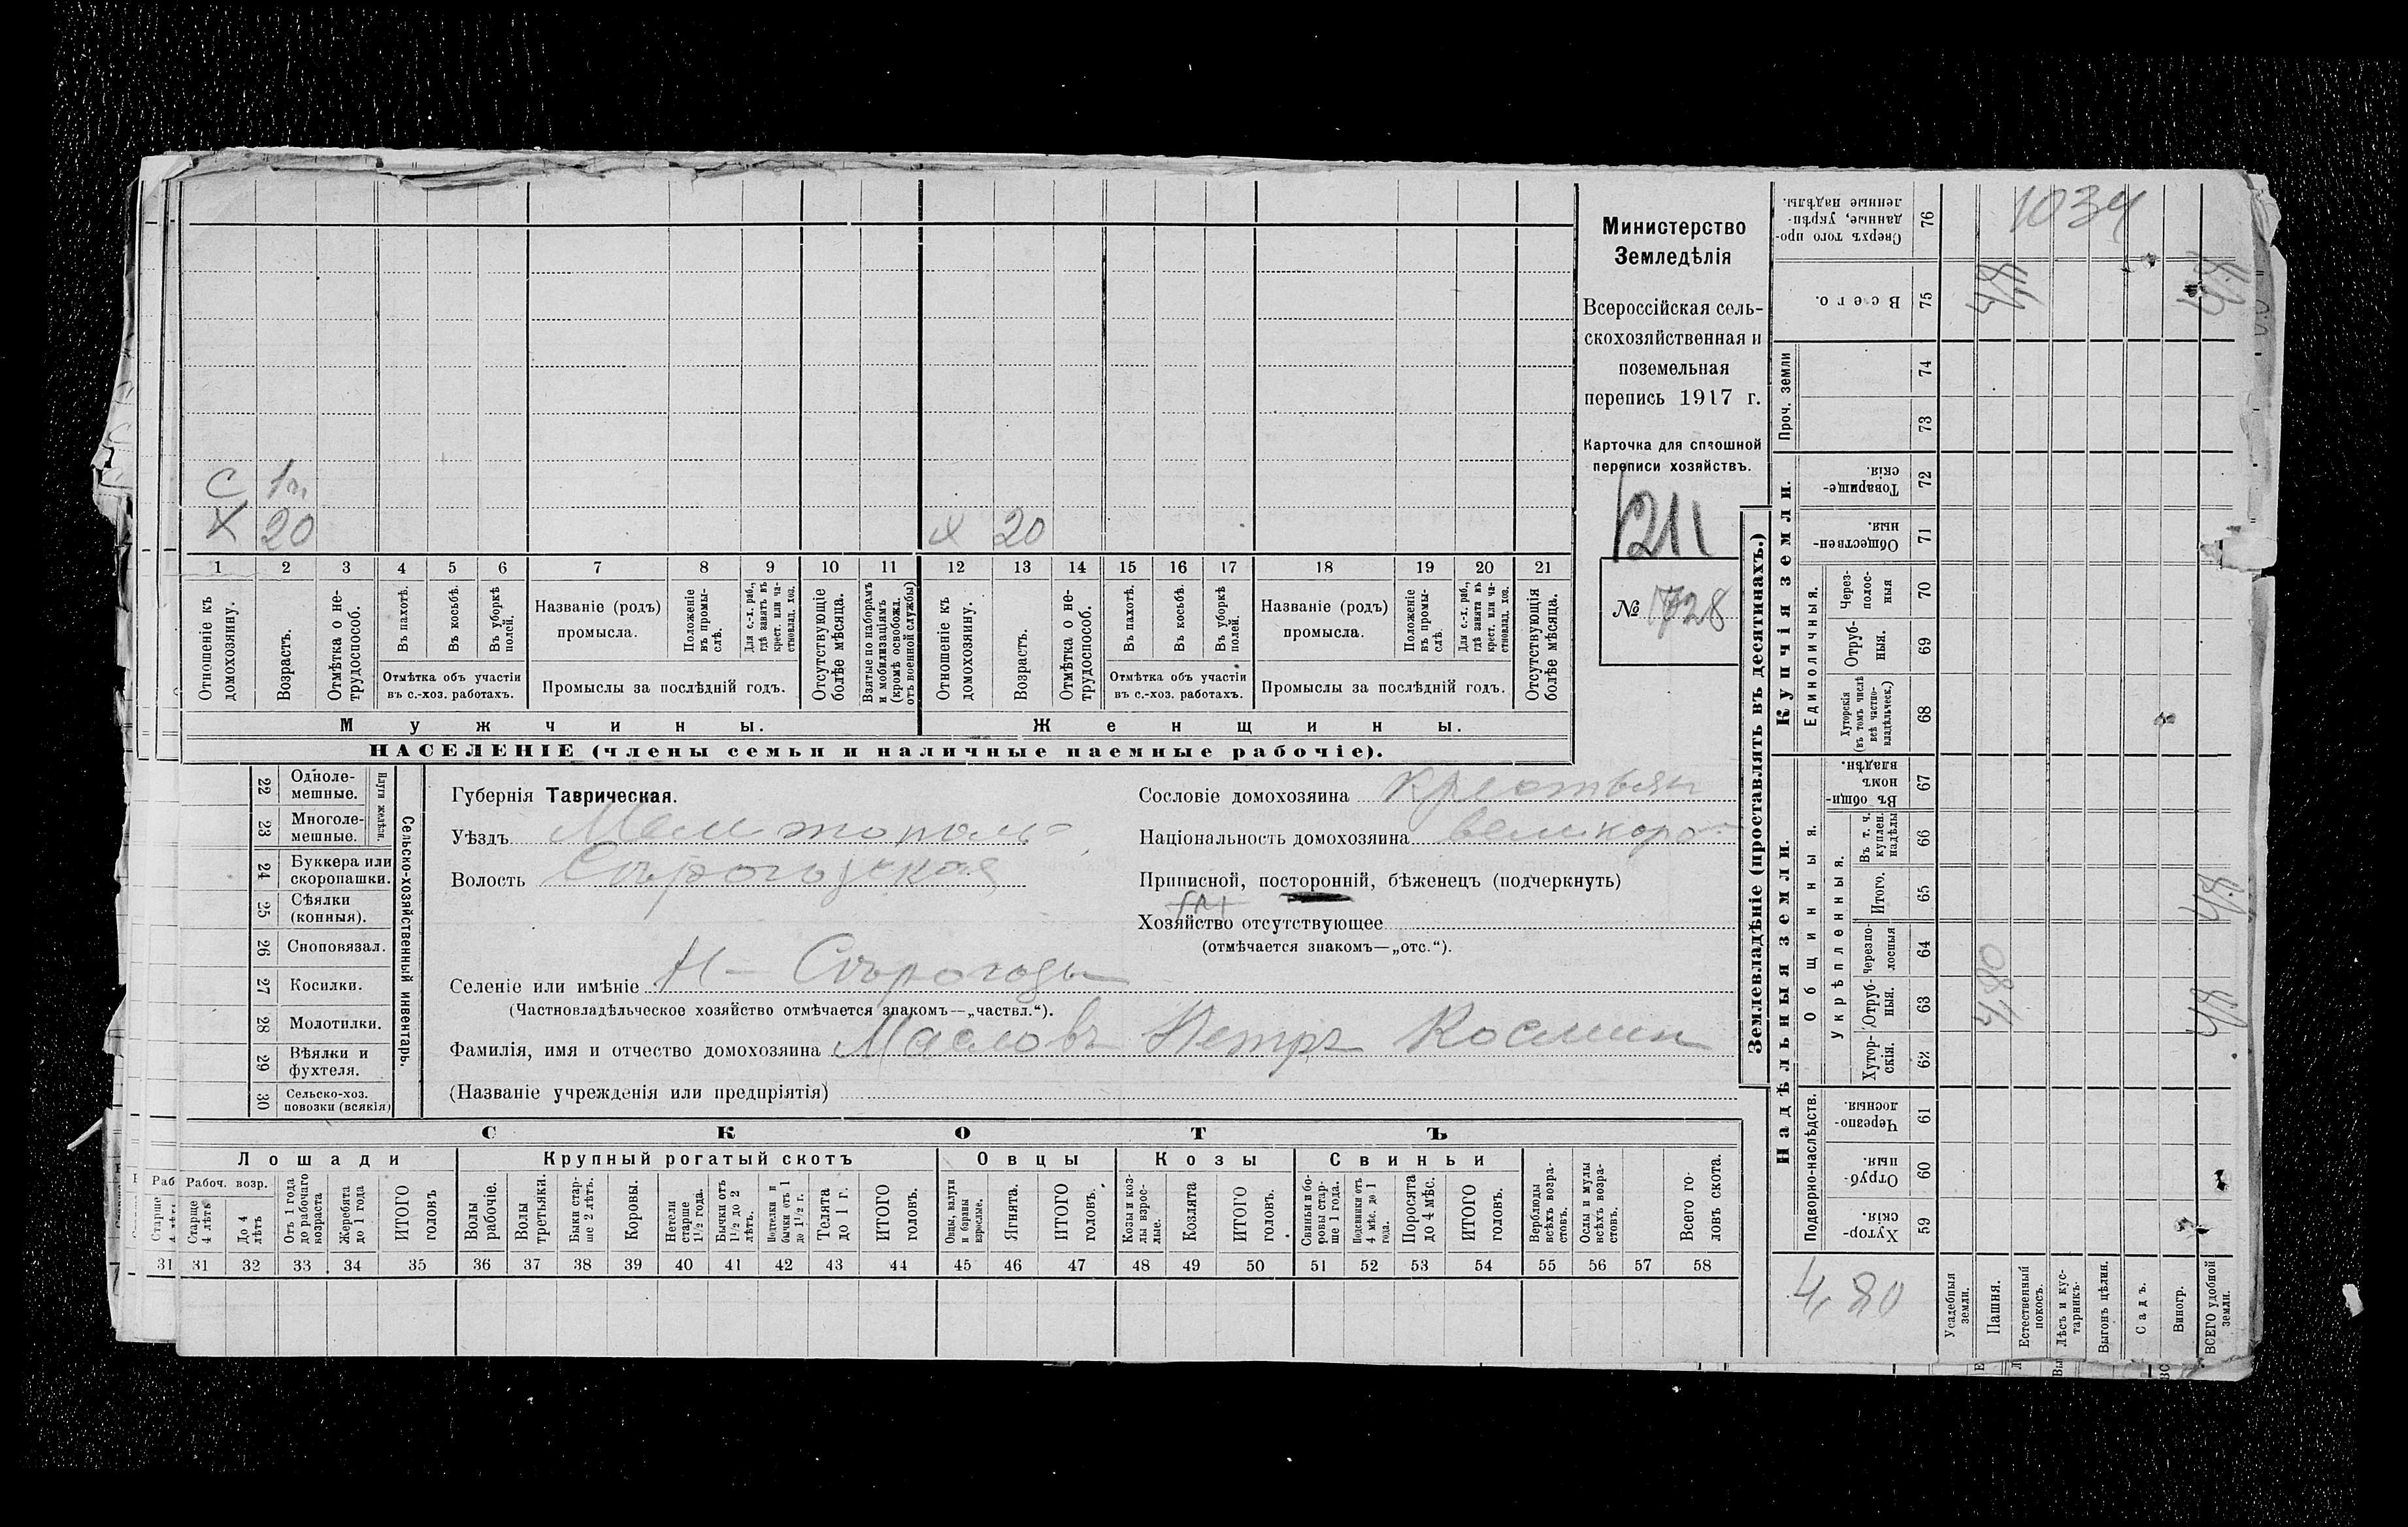 1034
Министерство
Земледѣлія
Всероссійская сель-
скохозяйственная и
поземельная
перепись 1917 г.
Карточка для сплошной
переписи хозяйствъ.
1211
№ 1728
С 1 м
Х 20
х 20
1 2 3 4 5 6 7 8 9 10 11 12 13 14 15 16 17 18 19 20 21
Отношеніе къ домохозяину.
Возрастъ.
Отмѣтка о не-трудоспособ.
Въ пахотѣ.
Въ косьбѣ.
Въ уборкѣ полей.
Отмѣтка объ участіи въ с.-хоз. работахъ.
Названіе (родъ) промысла.
Положеніе въ промы-слѣ.
Для с.-х. раб., гдѣ занятъ въ крест. или ча-стновлад. хоз.
Промыслы за послѣдній годъ.
Отсутствующіе болѣе мѣсяца.
Взятые по наборамъ и мобилизаціямъ (кромѣ освобожд. отъ военной службы)
Отношеніе къ домохозяину.
Возрастъ.
Отмѣтка о не-трудоспособ.
Въ пахотѣ.
Въ косьбѣ.
Въ уборкѣ полей.
Отмѣтка объ участіи въ с.-хоз. работахъ.
Названіе (родъ) промысла.
Положеніе въ промы-слѣ.
Для с.-х. раб., гдѣ занята въ крест. или ча-стновлад. хоз.
Промыслы за послѣдній годъ.
Отсутствующія болѣе мѣсяца.
Мужчины.
Женщины.
НАСЕЛЕНІЕ (члены семьи и наличные наемные рабочіе).
22 Одноле-мешные.
23 Многоле-мешные.
24 Буккера или скоропашки.
25 Сѣялки (конныя).
26 Сноповязал.
27 Косилки.
28 Молотилки.
29 Вѣялки и фухтеля.
30 Сельско-хоз. повозки (всякія)
Сельско-хозяйственный инвентарь.
Губернія Таврическая.
Уѣздъ Мелитополь
Волость Сѣрогозская
Сословіе домохозяина Крестьян
Національность домохозяина великоро
Приписной, посторонній, бѣженецъ (подчеркнуть)
Хозяйство отсутствующее
(отмѣчается знакомъ—„отс.“).
Селеніе или имѣніе Н- Сѣрогозы
(Частновладѣльческое хозяйство отмѣчается знакомъ—„частвл.“).
Фамилія, имя и отчество домохозяина Масловъ Петръ Космин
(Названіе учрежденія или предпріятія)
СКОТЪ
Лошади
Крупный рогатый скотъ
Овцы
Козы
Свиньи
Рабоч. возр.
Старше 4 лѣтъ
До 4 лѣтъ
Отъ 1 года до рабочаго возраста
Жеребята до 1 года
ИТОГО головъ
Волы рабочіе.
Волы третьяки.
Быки стар-ше 2 лѣтъ.
Коровы.
Нетели старше 1½ года.
Бычки отъ 1½ до 2 лѣтъ.
Подтелки и бычки отъ 1 до 1½ г.
Телята до 1 г.
ИТОГО головъ.
Овцы, валухи и бараны взрослые.
Ягнята.
ИТОГО головъ.
Козы и коз-лы взрос-лые.
Козлята
ИТОГО головъ.
Свиньи и бо-ровы стар-ше 1 года.
Подсвинки отъ 4 мѣс. до 1 года.
Поросята до 4 мѣс.
ИТОГО головъ.
Верблюды всѣхъ возра-стовъ.
Ослы и мулы всѣхъ возра-стовъ.
Всего го-ловъ скота.
31 32 33 34 35 36 37 38 39 40 41 42 43 44 45 46 47 48 49 50 51 52 53 54 55 56 57 58
Землевладѣніе (проставлять въ десятинахъ.)
Купчія земли.
Надѣльныя земли.
Сверхъ того про-данные, укрѣп-ленные надѣлы. 76
Всего. 75
Проч. земли
74
73
Товарище-скія. 72
Обществен-ныя. 71
Единоличныя.
Через-полос-ныя 70
Отруб-ныя. 69
Хуторскія (въ томъ числѣ всѣ частно-владѣльческ.) 68
Въ общин-номъ владѣн. 67
Общинныя.
Укрѣпленныя.
Въ т. ч. куплен. надѣлы 66
Итого. 65
Черезпо-лосныя 64
Отруб-ныя. 63
Хутор-скія. 62
Подворно-наслѣдств.
Черезпо-лосныя. 61
Отруб-ныя. 60
Хутор-скія. 59
4,80
4,80
Усадебныя земли.
Пашня.
Естественный покосъ.
Лѣсъ и кус-тарникъ.
Выгонъ цѣлин.
Садъ.
Виногр.
ВСЕГО удобной земли.